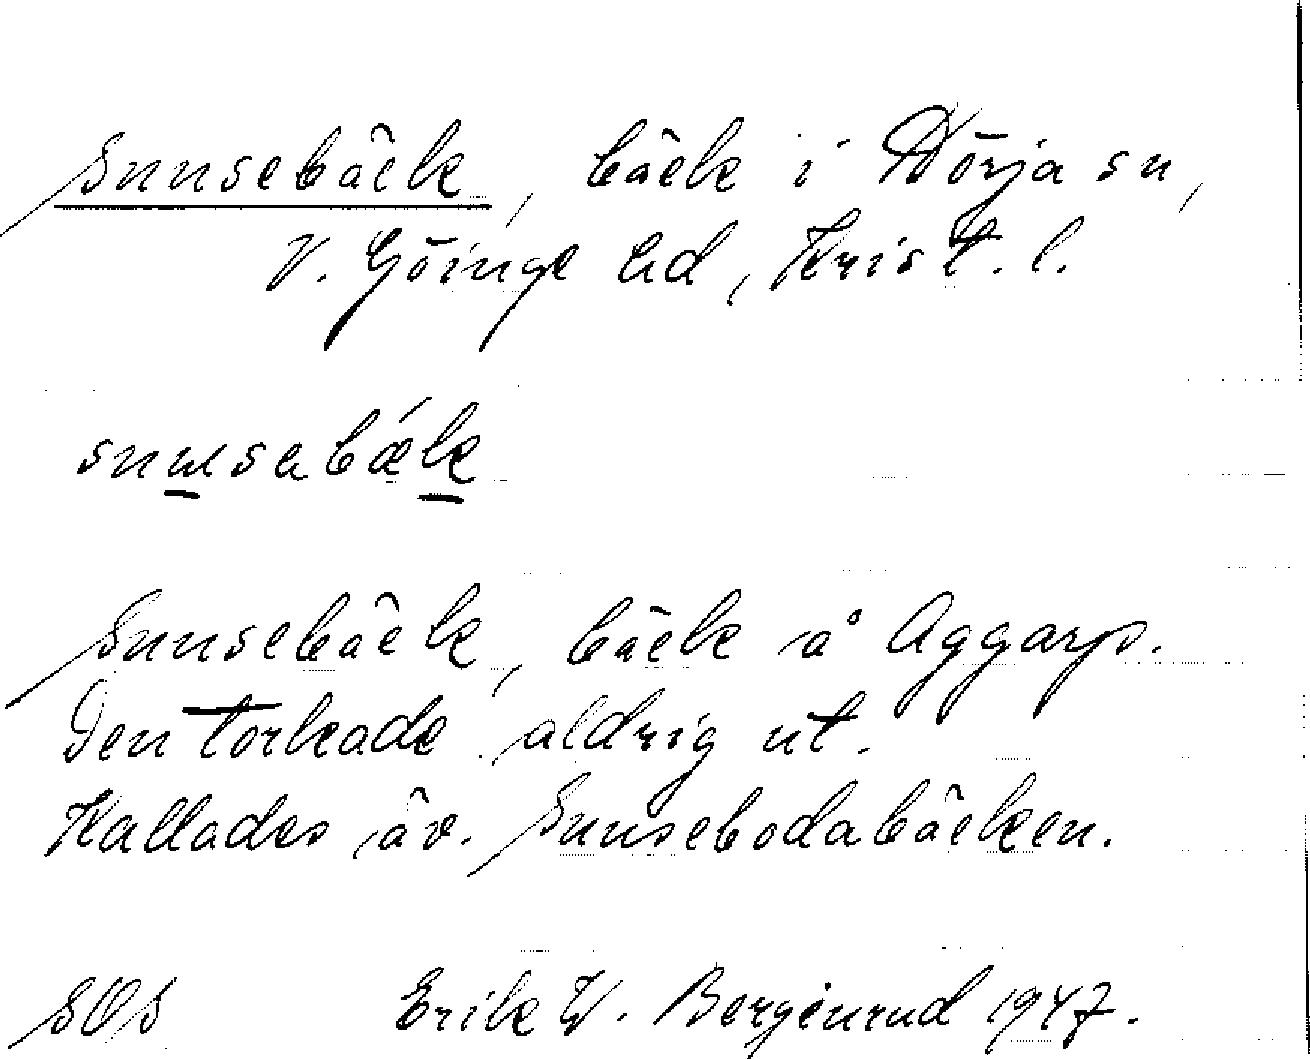 Snusebäck, bäck i Nörja sn,
V. Göinge hd, Krist. l.
snusabæk
Snusebäck, bäck å Aggarp.
Den torkade aldrig ut.
Kallades äv. Snusebodabäcken.
SOS Erik W. Bergenrud 1947.